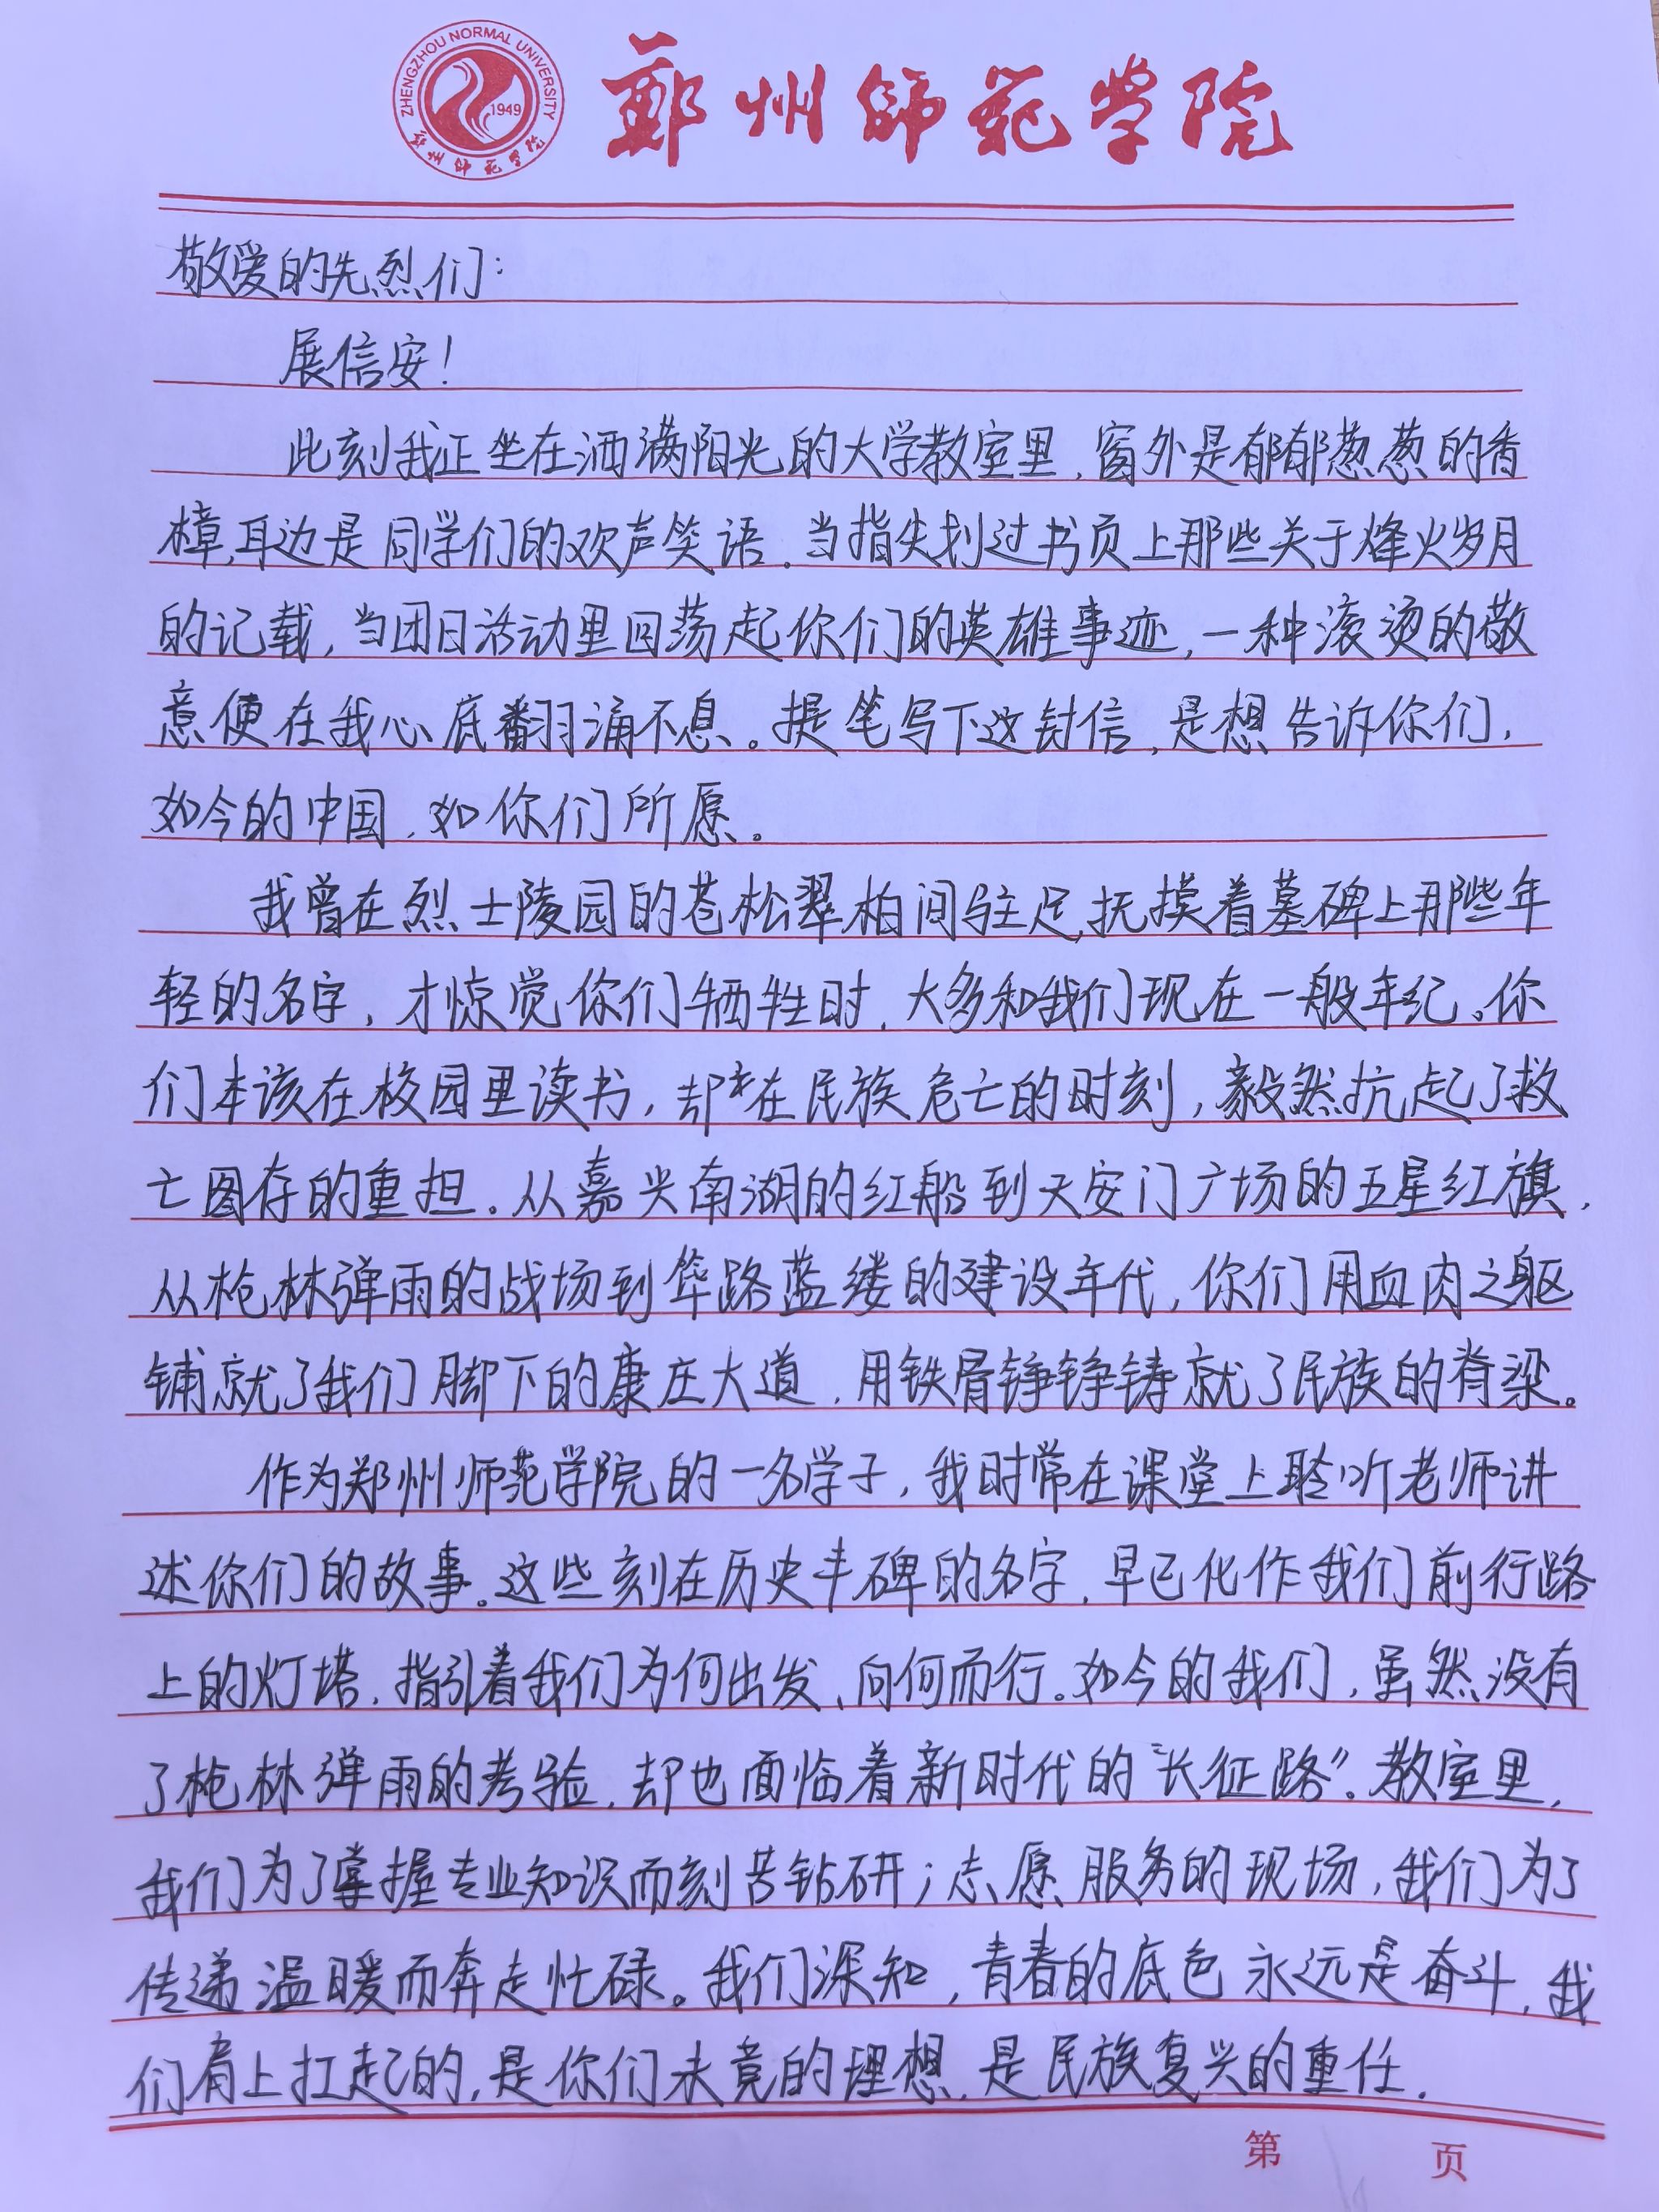 ZHENGZHOU NORMAL UNIVERSITY
1949
郑州师范学院
鄭州師范学院
敬爱的先烈们：
展信安！
此刻我正坐在洒满阳光的大学教室里，窗外是郁郁葱葱的香
樟，耳边是同学们的欢声笑语。当指尖划过书页上那些关于烽火岁月
的记载，当团日活动里回荡起你们的英雄事迹，一种滚烫的敬
意便在我心底翻涌不息。提笔写下这封信，是想告诉你们，
如今的中国，如你们所愿。
我曾在烈士陵园的苍松翠柏间驻足，抚摸着墓碑上那些年
轻的名字，才惊觉你们牺牲时，大多和我们现在一般年纪。你
们本该在校园里读书，却在民族危亡的时刻，毅然抗起了救
亡图存的重担。从嘉兴南湖的红船到天安门广场的五星红旗，
从枪林弹雨的战场到筚路蓝缕的建设年代，你们用血肉之躯
铺就了我们脚下的康庄大道，用铁骨铮铮铸就了民族的脊梁。
作为郑州师范学院的一名学子，我时常在课堂上聆听老师讲
述你们的故事。这些刻在历史丰碑的名字，早已化作我们前行路
上的灯塔，指引着我们为何出发、向何而行。如今的我们，虽然没有
了枪林弹雨的考验，却也面临着新时代的“长征路”。教室里，
我们为了掌握专业知识而刻苦钻研；志愿服务的现场，我们为了
传递温暖而奔走忙碌。我们深知，青春的底色永远是奋斗，我
们肩上扛起的，是你们未竟的理想，是民族复兴的重任。
第 页